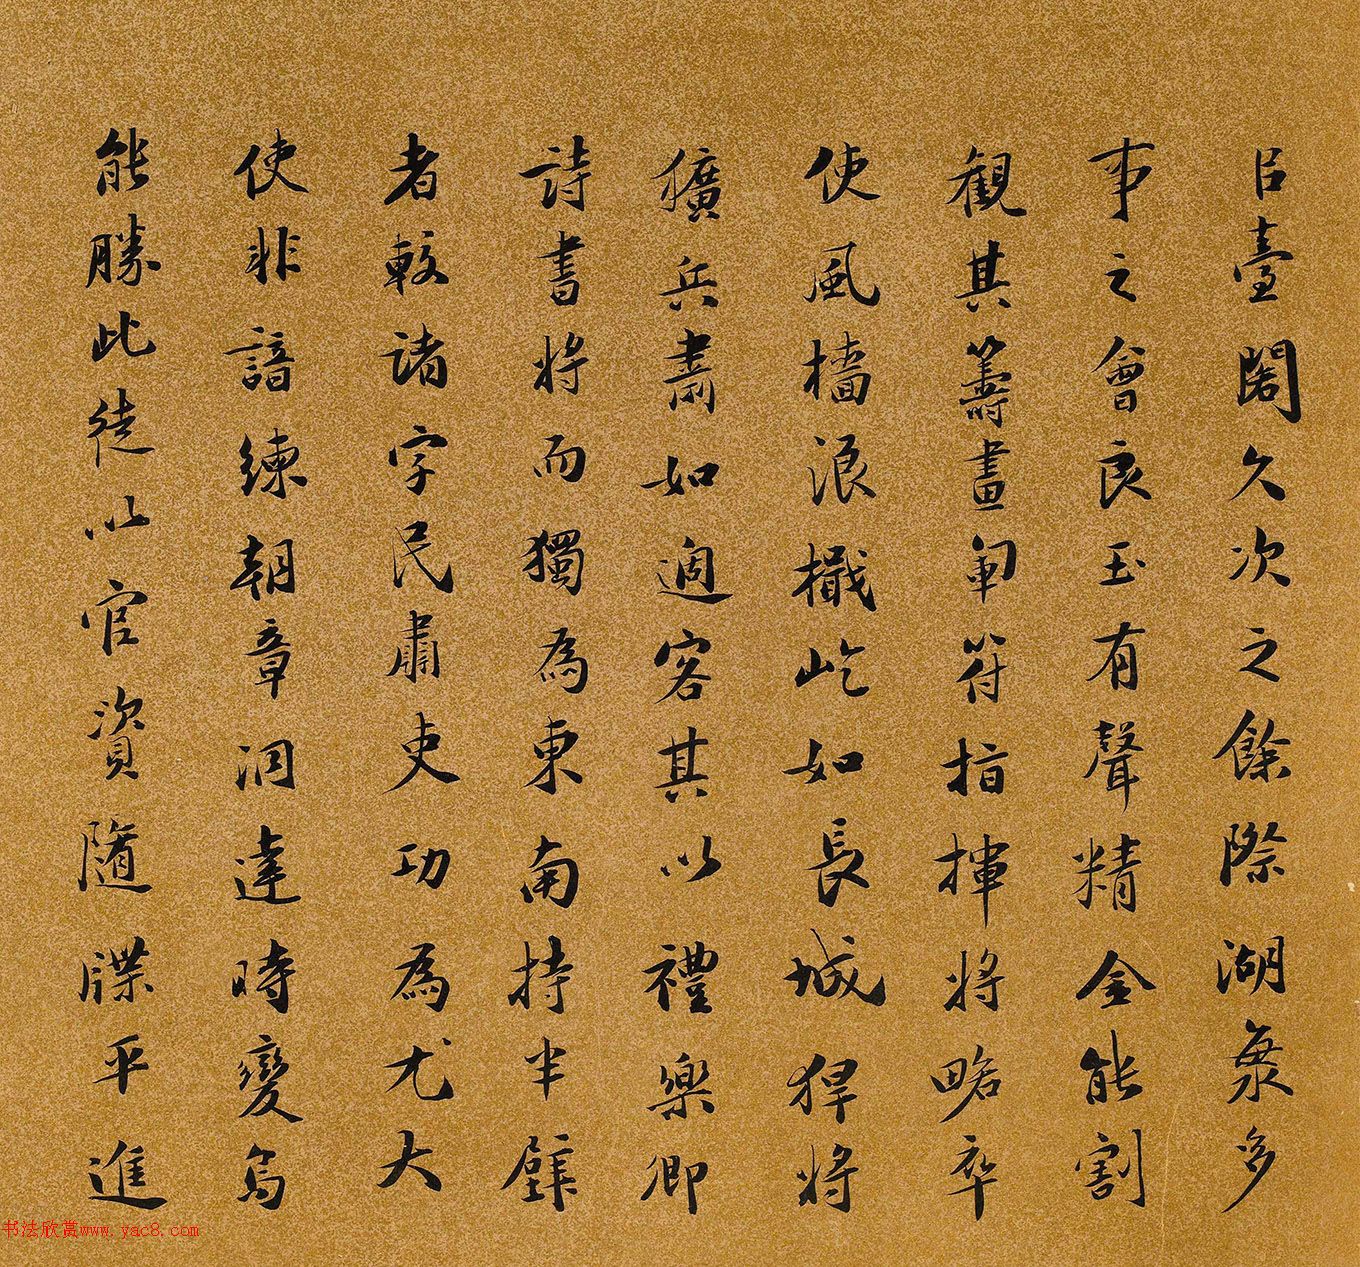 㠯臺閣久次之餘際湖多
事之會良玉有聲精金能割
觀其籌畫軍符指揮將略卒
使風檣浪檝屹如長城猂將
獷兵肅如適客其以禮樂卿
詩書將而獨為東南持半壁
者較諸字民肅吏功為尤大
使非諳練朝章洞達時變烏
能勝此徒以官資隨牒平進
书法欣赏www.yac8.com